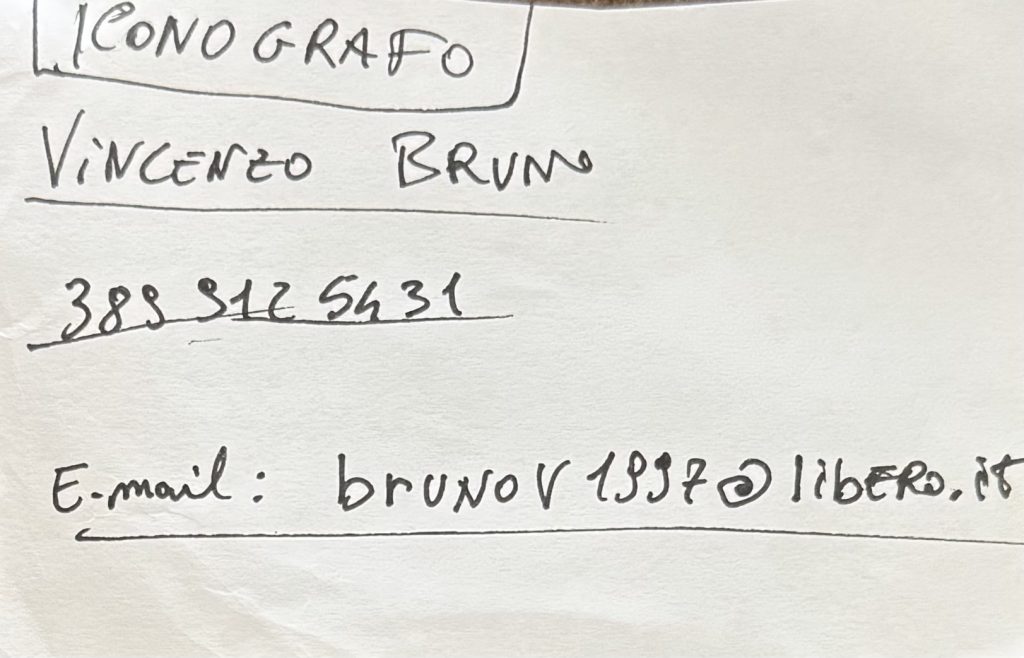 ICONOGRAFO
VINCENZO BRUNO
389 912 5431
E-mail: brunov1997@libero.it